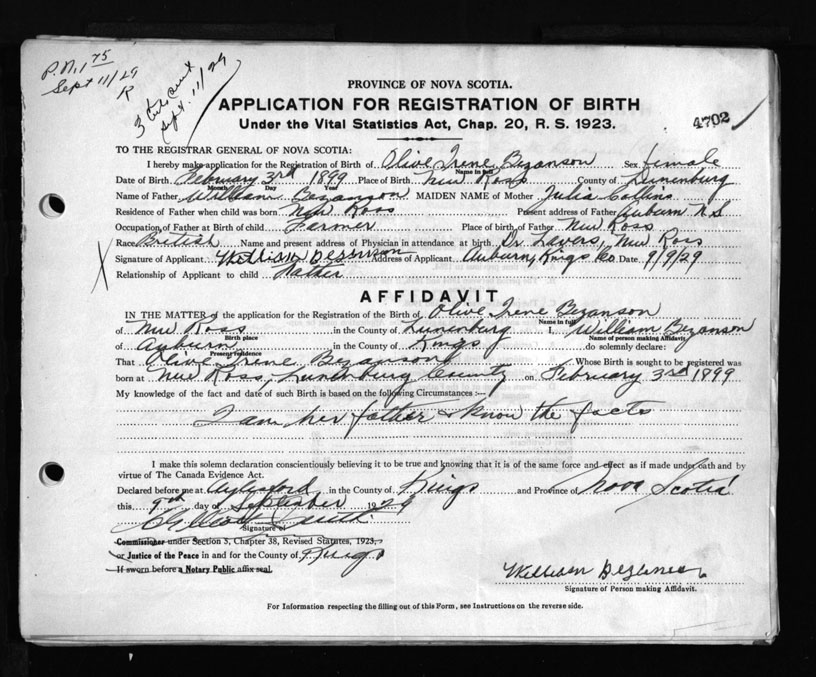 P.N. 1 75
Sept 11/29
R
Sept. 11/29
PROVINCE OF NOVA SCOTIA.
APPLICATION FOR REGISTRATION OF BIRTH
4702
Under the Vital Statistics Act, Chap. 20, R. S. 1923.
TO THE REGISTRAR GENERAL OF NOVA SCOTIA:
I hereby make application for the Registration of Birth of Olive Irene Bezanson Sex female
Name in full
Date of Birth February 3rd 1899 Place of Birth New Ross County of Lunenburg
Month Day Year
Name of Father William Bezanson MAIDEN NAME of Mother Julia Collins
Residence of Father when child was born New Ross Present address of Father Auburn N S
Occupation of Father at Birth of child Farmer Place of birth of Father New Ross
Race British Name and present address of Physician in attendance at birth Dr Lavers, New Ross
Signature of Applicant William Bezanson Address of Applicant Auburn, Kings Co. Date 9/9/29
Relationship of Applicant to child Father
AFFIDAVIT
IN THE MATTER of the application for the Registration of the Birth of Olive Irene Bezanson
Name in full
of New Ross in the County of Lunenburg I, William Bezanson
Birth place Name of person making Affidavit
of Auburn in the County of Kings do solemnly declare:
Present residence
That Olive Irene Bezanson Whose Birth is sought to be registered was
born at New Ross, Lunenburg County on February 3rd 1899
My knowledge of the fact and date of such Birth is based on the following Circumstances :--
I am her father & know the facts
I make this solemn declaration conscientiously believing it to be true and knowing that it is of the same force and effect as if made under oath and by
virtue of The Canada Evidence Act.
Declared before me at Aylesford in the County of Kings and Province of Nova Scotia
this 9th day of September 1929
Signature of
Commissioner under Section 3, Chapter 38, Revised Statutes, 1923,
or Justice of the Peace in and for the County of Kings
If sworn before a Notary Public affix seal.
William Bezanson
Signature of Person making Affidavit.
For Information respecting the filling out of this Form, see Instructions on the reverse side.